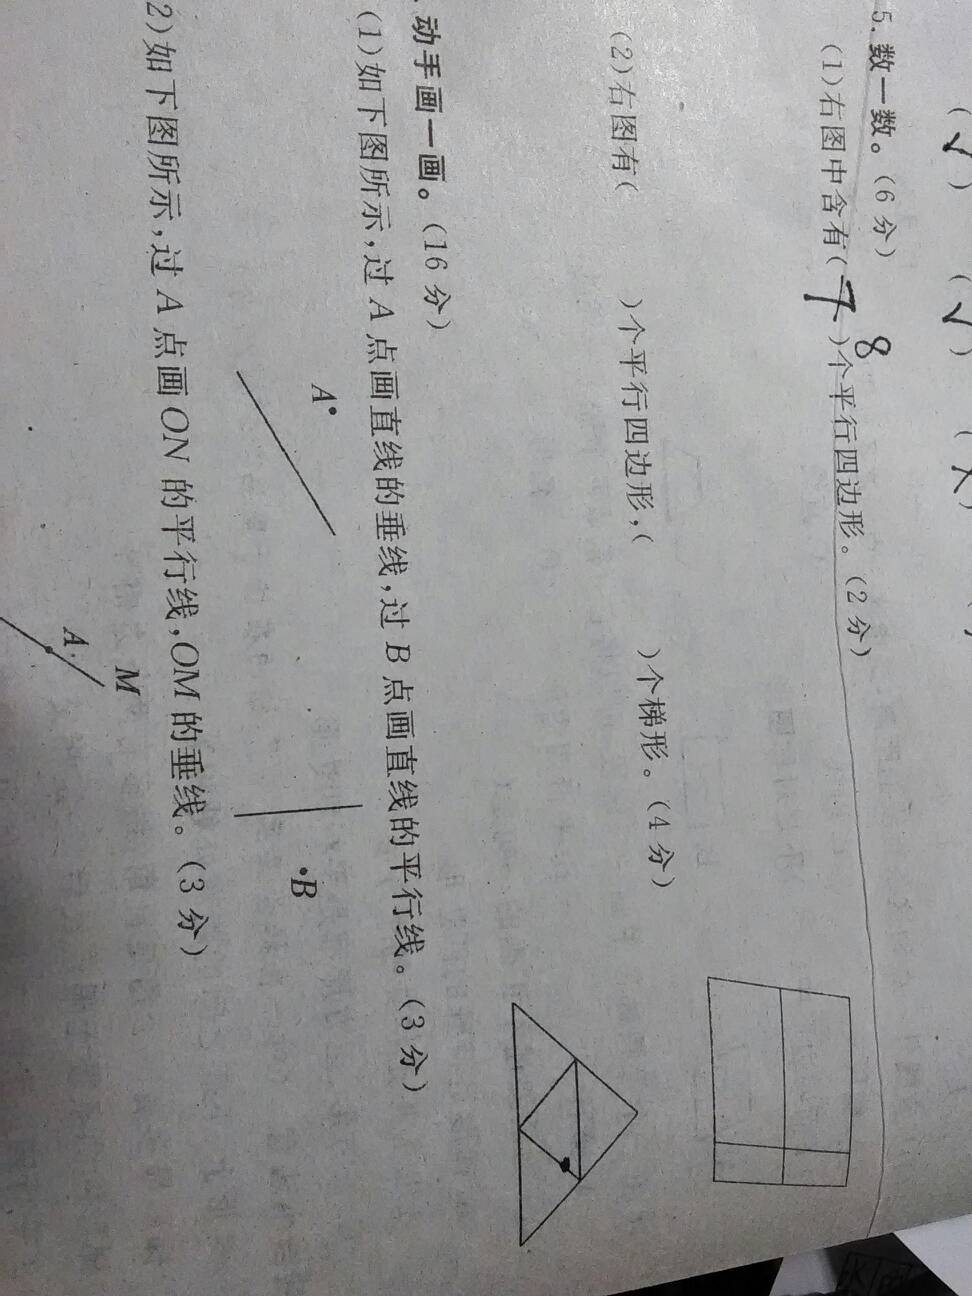 (√) (√) (×)
5. 数一数。(6分)
(1)右图中含有(7 8)个平行四边形。(2分)
(2)右图有( )个平行四边形,( )个梯形。(4分)
.动手画一画。(16分)
(1)如下图所示,过A点画直线的垂线,过B点画直线的平行线。(3分)
A
B
2)如下图所示,过A点画ON的平行线,OM的垂线。(3分)
M
A